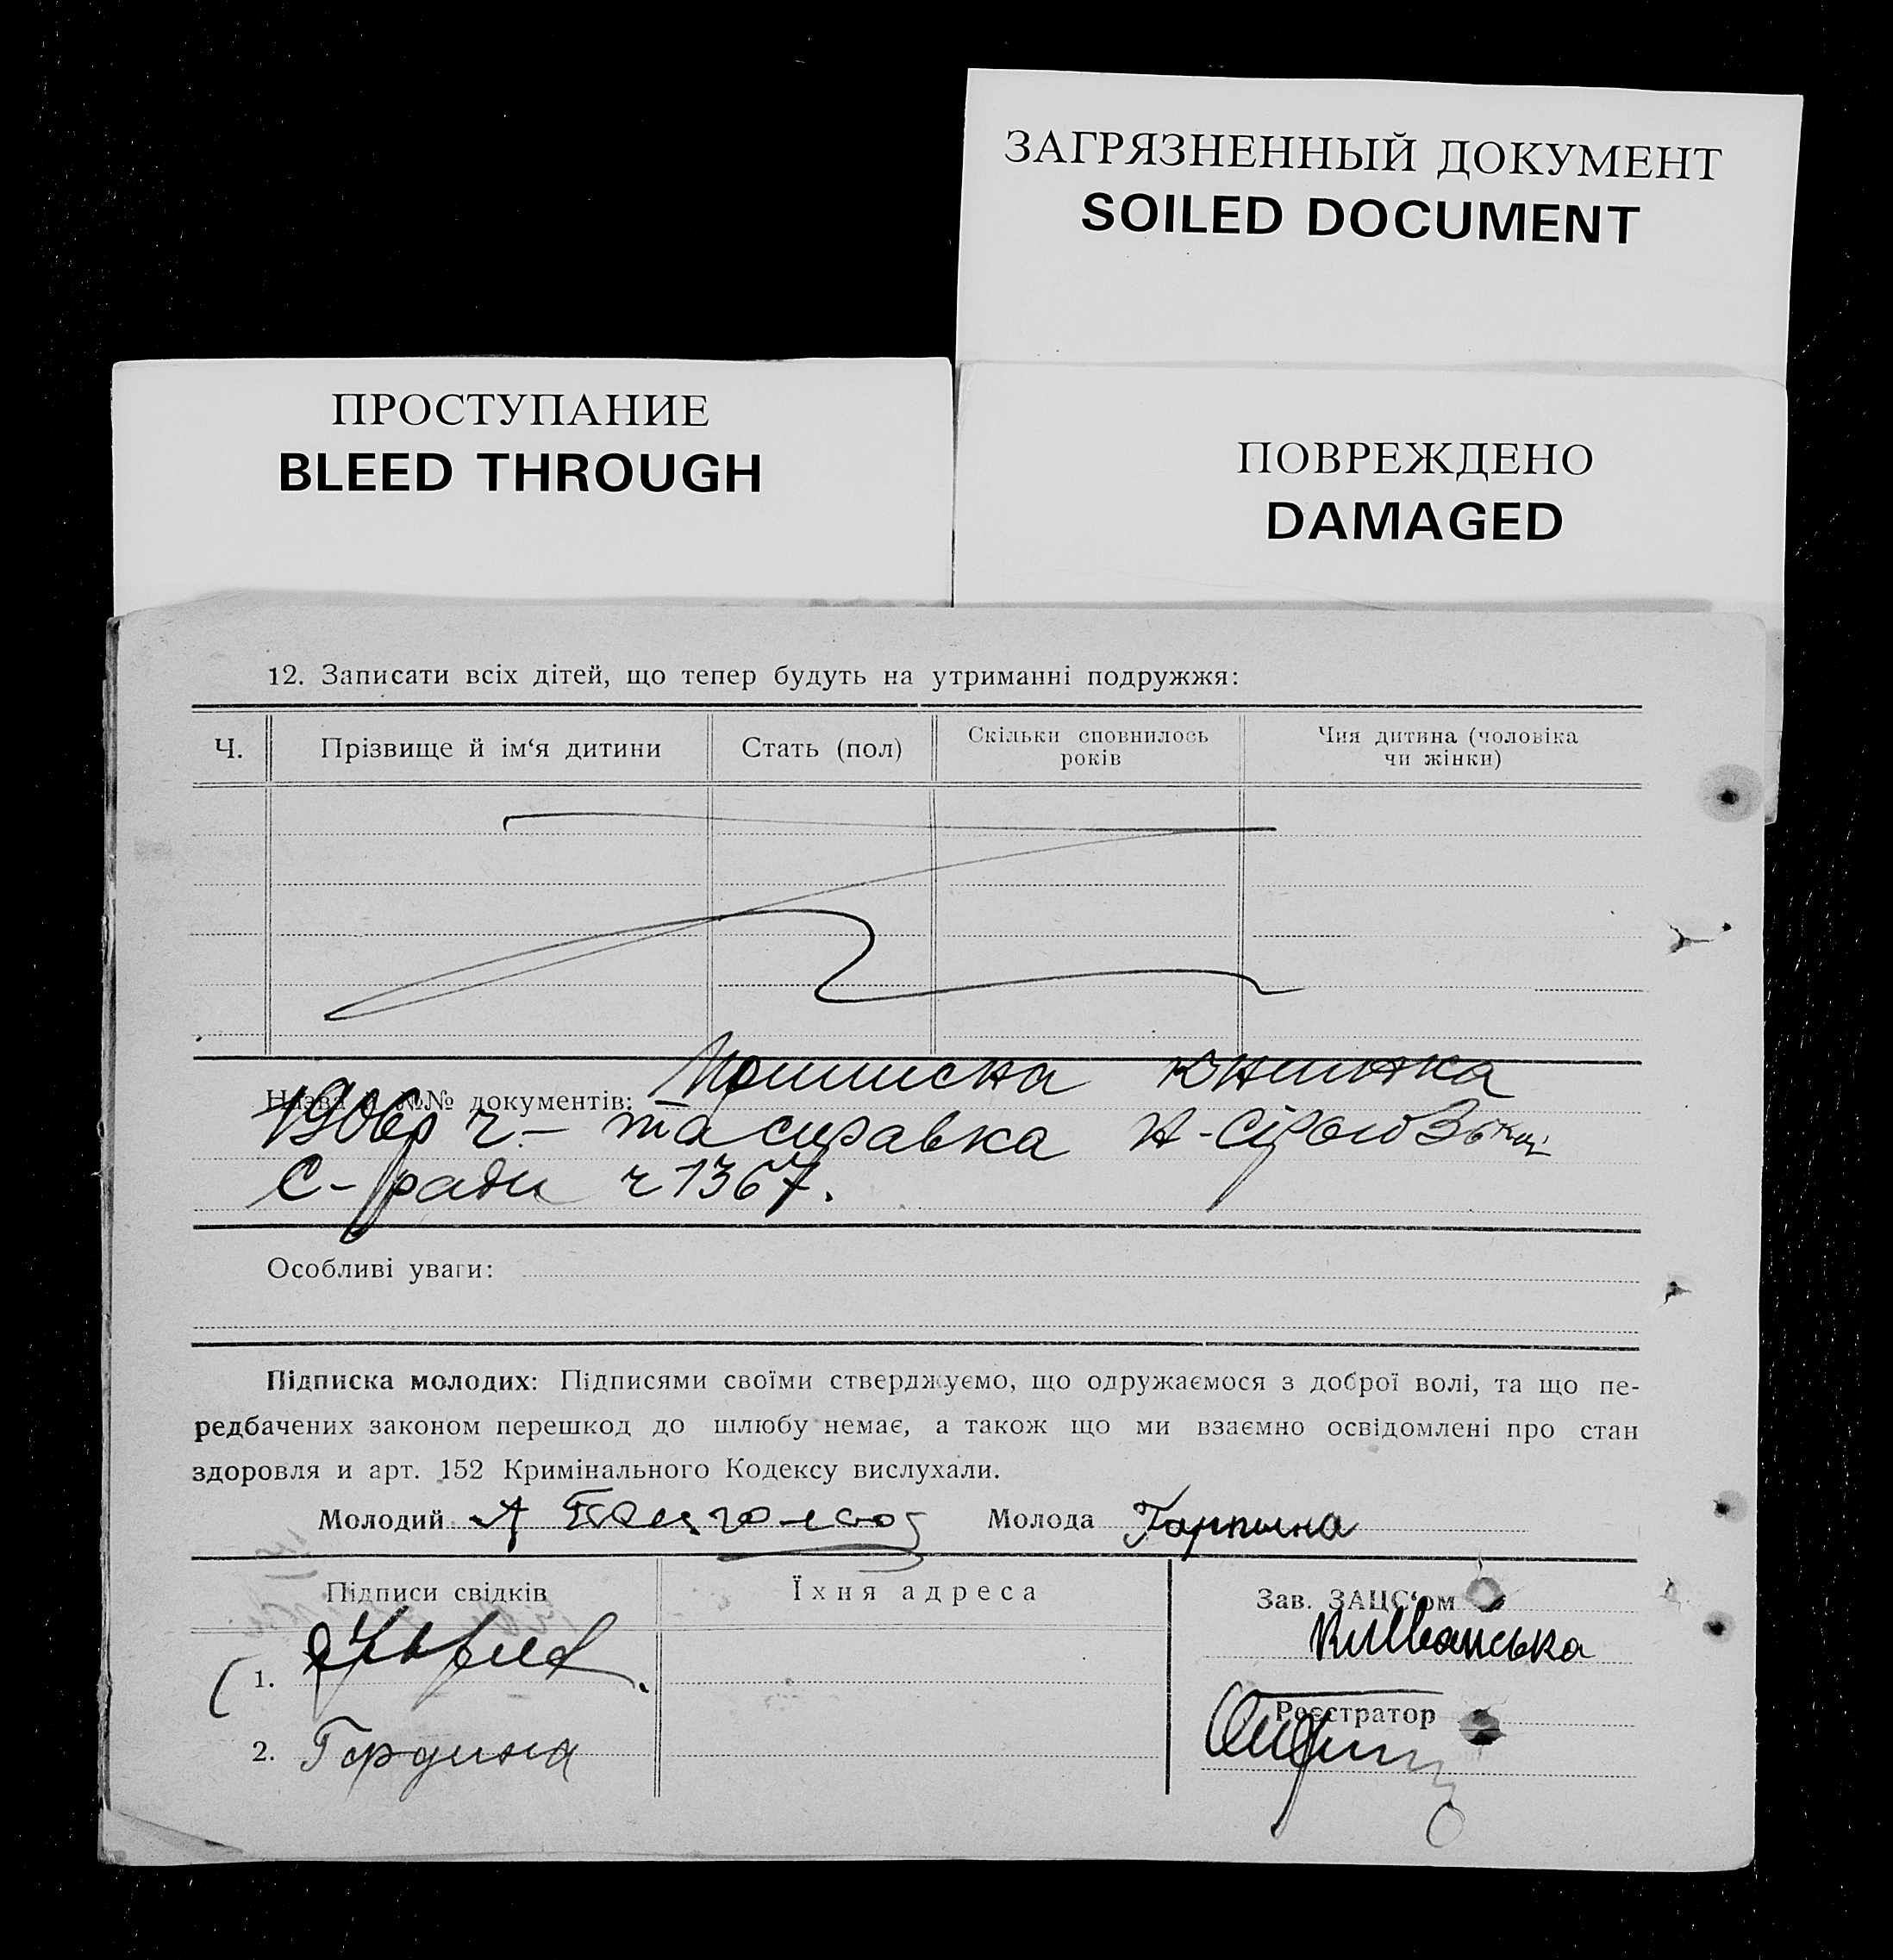 ЗАГРЯЗНЕННЫЙ ДОКУМЕНТ
SOILED DOCUMENT
ПРОСТУПАНИЕ
BLEED THROUGH
ПОВРЕЖДЕНО
DAMAGED
12. Записати всіх дітей, що тепер будуть на утриманні подружжя:
Ч. Прізвище й ім‘я дитини Стать (пол) Скільки сповнилось років Чия дитина (чоловіка чи жінки)
Назва й №№ документів: книжка
1906р ч – та справка
С-ради ч 1367.
Особливі уваги:
Підписка молодих: Підписями своїми стверджуємо, що одружаємося з доброї волі, та що пе-
редбачених законом перешкод до шлюбу немає, а також що ми взаємно освідомлені про стан
здоровля и арт. 152 Кримінального Кодексу вислухали.
Молодий Молода Гарпына
Підписи свідків Їхня адреса Зав. ЗАЦС‘ом
1.
Реєстратор
2. Гордина